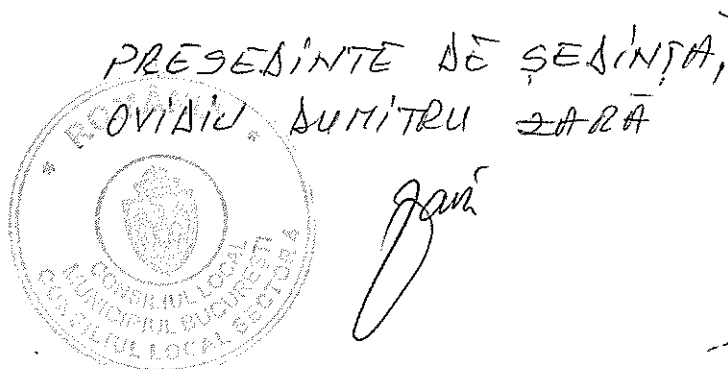 PRESEDINTE DE ȘEDINȚĂ,
OVIDIU DUMITRU ZARĂ
* ROMÂNIA *
CONSILIUL LOCAL
MUNICIPIUL BUCUREȘTI
CONSILIUL LOCAL SECTOR
Zară